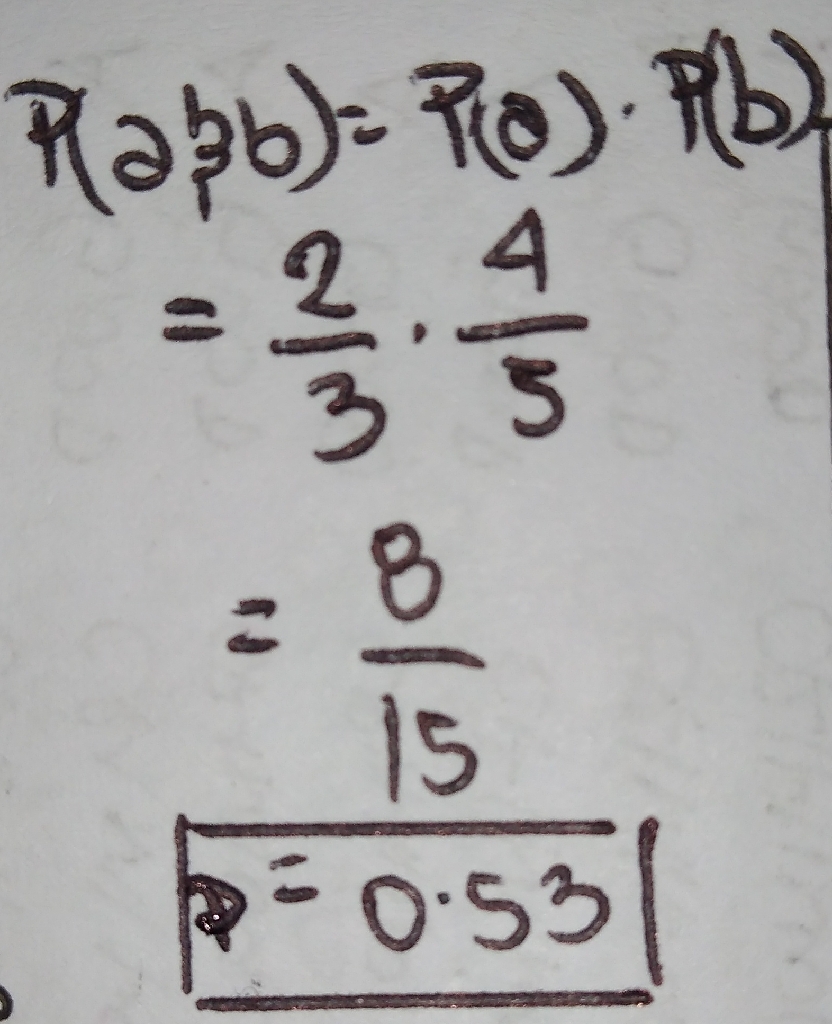 P(a&b) = P(a) · P(b)
= 2/3 · 4/5
= 8/15
P = 0.53